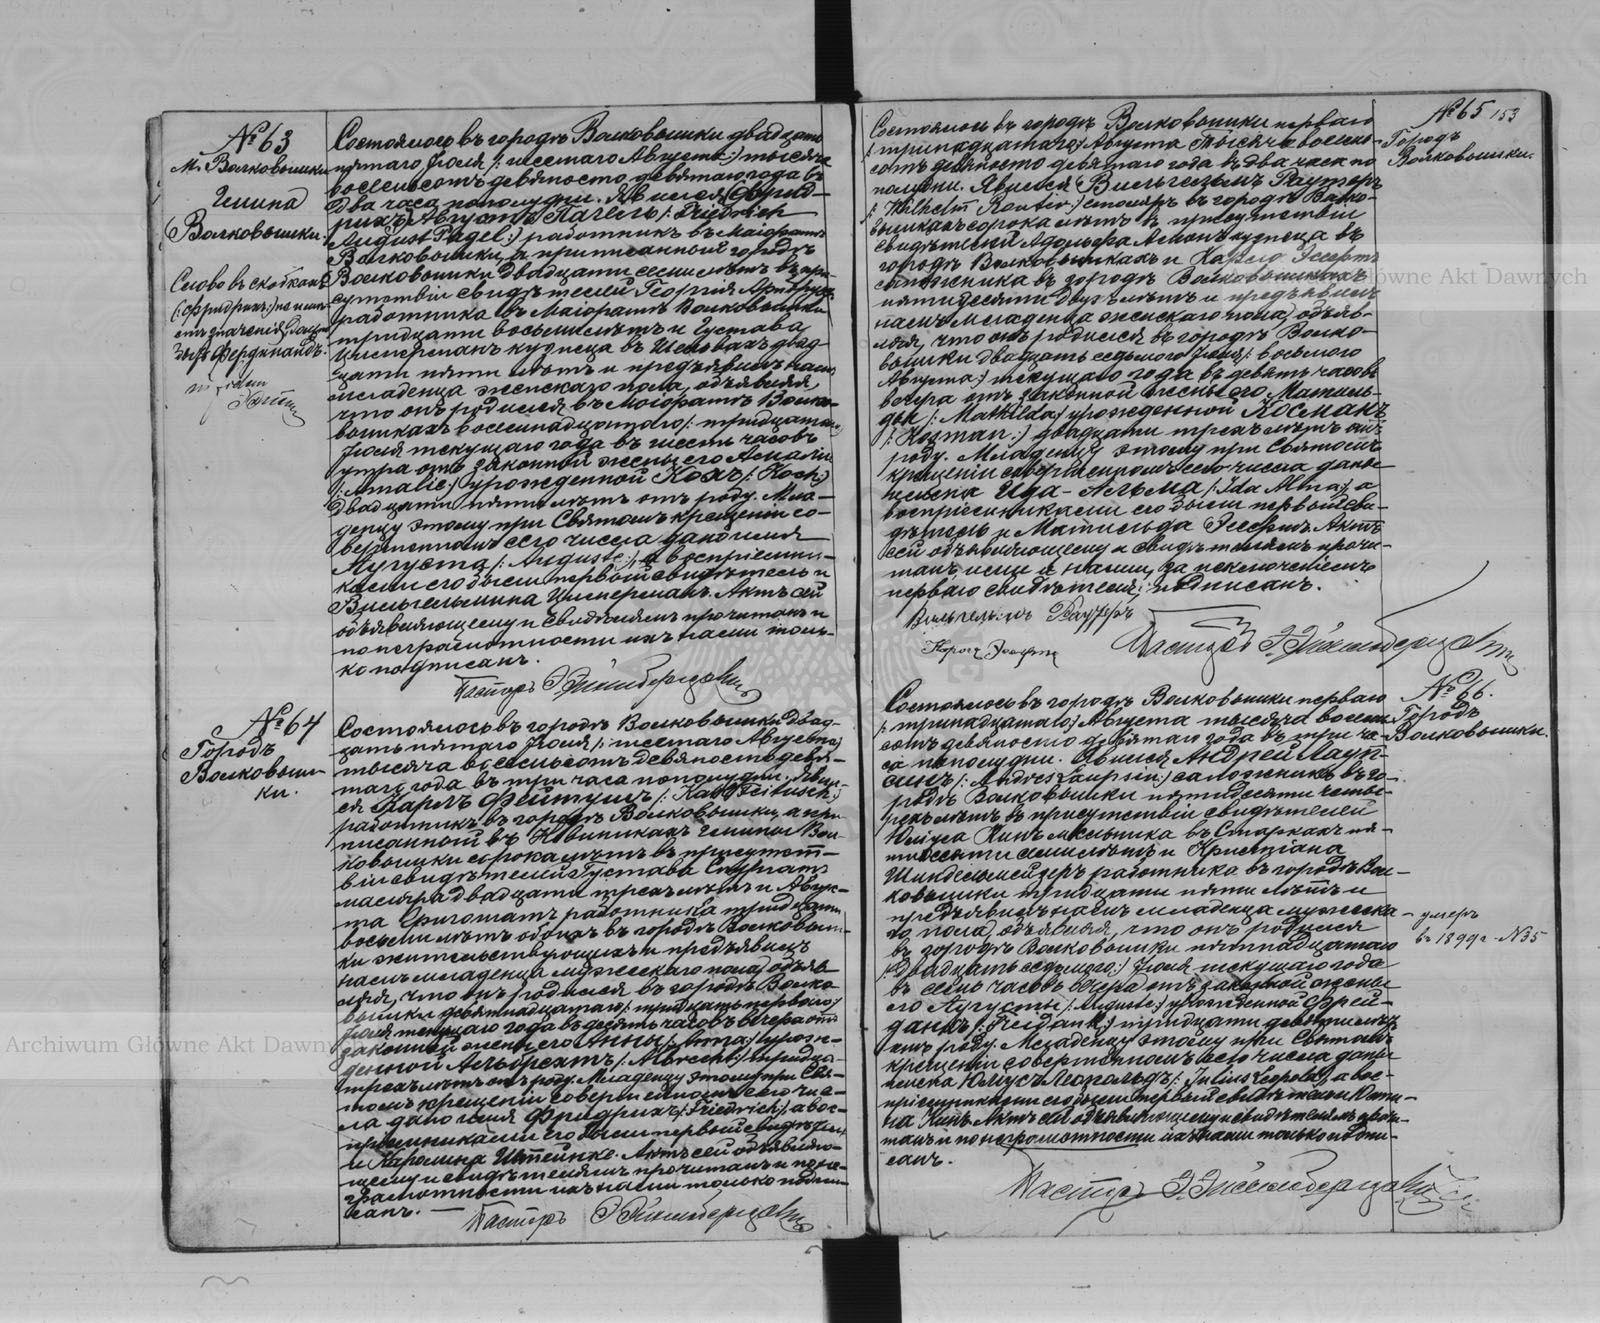 № 63
М. Волковышки
Гмина
Волковышки.
Слово въ скобкахъ
(:Фридрихъ:) не име-
етъ значенія,
Фердинандъ.
Состоялось въ городѣ Волковышки двадцать
пятаго Іюля /: шестаго Августа :/ тысяча
восемьсотъ девяносто девятаго года въ
два часа пополудни. Явился (Фрид-
рихъ) Августъ Пагель /: Friedrich
August Pagel :/ работникъ въ Маіоратѣ
Волковышки, а приписанной городѣ
Волковышки двадцати семи лѣтъ въ при-
сутствіи свидѣтелей Георгія
работника въ Маіоратѣ Волковышки
тридцати восьми лѣтъ и Густава
Цимерманъ кузнеца въ двад-
цати пяти лѣтъ и предъявилъ намъ
младенца женскаго пола, объявляя,
что онъ родился въ Маіоратѣ Волко-
вышкахъ восемнадцатаго /: тридцатаго :/
Іюля текущаго года въ шесть часовъ
утра отъ законной жены его Амаліи
/: Amalie :/ урожденной Кохъ /: Koch :/
двадцати пяти лѣтъ отъ роду. Мла-
денцу этому при Святомъ крещеніи со-
вершенномъ сего числа дано имя
Августа /: Auguste :/, а воспріемни-
ками его были первый свидѣтель и
Вильгельмина Цимерманъ. Актъ сей
объявляющему и свидѣтелямъ прочитанъ и
по неграмотности ихъ нами толь-
ко подписанъ.
Пасторъ
№ 64
Городъ
Волковыш-
ки.
Состоялось въ городѣ Волковышки двад-
цать пятаго Іюля /: шестаго Августа :/
тысяча восемьсотъ девяносто девя-
таго года въ три часа пополудни. Явил-
ся Карлъ Фейтушъ /: Karl Feitusch :/
работникъ въ городѣ Волковышки, а при-
писанной въ Новиникахъ Гмины Вол-
ковышки сорока лѣтъ въ присутст-
віи свидѣтелей Густава
маляра двадцати трехъ лѣтъ и Авгус-
та работника тридцати
восьми лѣтъ обоихъ въ городѣ Волковыш-
ки жительствующихъ и предъявилъ
намъ младенца мужескаго пола, объяв-
ляя, что онъ родился въ городѣ Волко-
вышки девятнадцатаго /: тридцать перваго :/
Іюля текущаго года въ десять часовъ вечера отъ
законной жены его Анны /: Anna :/ урож-
денной Альбрехтъ /: Albrecht :/ тридца-
ти трехъ лѣтъ отъ роду. Младенцу этому при Свя-
томъ крещеніи совершенномъ сего чис-
ла дано имя Фридрихъ /: Friedrich :/, а вос-
пріемниками его были первый свидѣтель
и Каролина Штейнке. Актъ сей объявляю-
щему и свидѣтелямъ прочитанъ и по не-
грамотности ихъ нами только подпи-
санъ. —
Пасторъ
№ 65 153
Городъ
Волковышки.
Состоялось въ городѣ Волковышки перваго
/: тринадцатаго :/ Августа тысяча восемь-
сотъ девяносто девятаго года въ два часа по
полудни. Явился Вильгельмъ Раутеръ
/: Wilhelm Rauter :/ столяръ въ городѣ Волко-
вышкахъ сорока лѣтъ въ присутствіи
свидѣтелей Адольфа кузнеца въ
городѣ Волковышкахъ и Карла Эссертъ
сапожника въ городѣ Волковышкахъ
пятидесяти двухъ лѣтъ и предъявилъ
намъ младенца женскаго пола, объяв-
ляя, что онъ родился въ городѣ Волко-
вышки двадцать седьмого Іюля /: восьмого
Августа :/ текущаго года въ девять часовъ
вечера отъ законной жены его Матиль-
ды /: Mathilda :/ урожденной Косманъ
/: Kosman :/ двадцати трехъ лѣтъ отъ
роду. Младенцу этому при Святомъ
крещеніи совершенномъ сего числа даны
имена Ида-Альма /: Ida Alma :/, а
воспріемниками его были первый сви-
дѣтель и Матильда Эссертъ. Актъ
сей объявляющему и свидѣтелямъ прочи-
танъ, ими и нами, за исключеніемъ
перваго свидѣтеля, подписанъ.
Вильгельмъ Раутеръ
Пасторъ
№ 66.
Городъ
Волковышки.
Состоялось въ городѣ Волковышки перваго
/: тринадцатаго :/ Августа тысяча восемь-
сотъ девяносто девятаго года въ три ча-
са пополудни. Явился Андрей Лауп-
синъ /: Andres Laupsin :/ сапожникъ въ го-
родѣ Волковышки пятидесяти четы-
рехъ лѣтъ въ присутствіи свидѣтелей
Юліуса Кипъ мельника въ Старкахъ пя-
тидесяти семи лѣтъ и Христіана
Шиндельмейзеръ работника въ городѣ Вол-
ковышки тридцати пяти лѣтъ и
предъявилъ намъ младенца мужеска-
го пола, объявляя, что онъ родился
въ городѣ Волковышки пятнадцатаго
/: двадцать седьмого :/ Іюля текущаго года
въ семь часовъ вечера отъ законной жены
его Августы /: Auguste :/ урожденной Фрей-
данкъ /: Freidank :/ тридцати девяти лѣтъ
отъ роду. Младенцу этому при Святомъ
крещеніи совершенномъ сего числа даны
имена Юліусъ Леопольдъ /: Julius Leopold :/, а вос-
пріемниками его были первый свидѣтель и
на Кипъ. Актъ сей объявляющему и свидѣтелямъ прочи-
танъ и по неграмотности ихъ нами только подпи-
санъ.
Пасторъ
– умеръ
въ 1899 г. – N 35
Archiwum Główne Akt Dawnych
Archiwum Główne Akt Dawnych